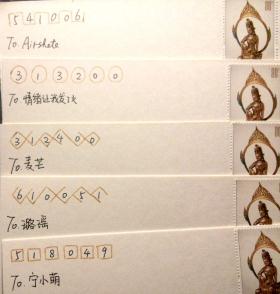 541006
To. Airshota
313200
To. 情绪让我发了次
312400
To. 麦芒
610051
To. 璐瑶
518049
To. 宁小萌